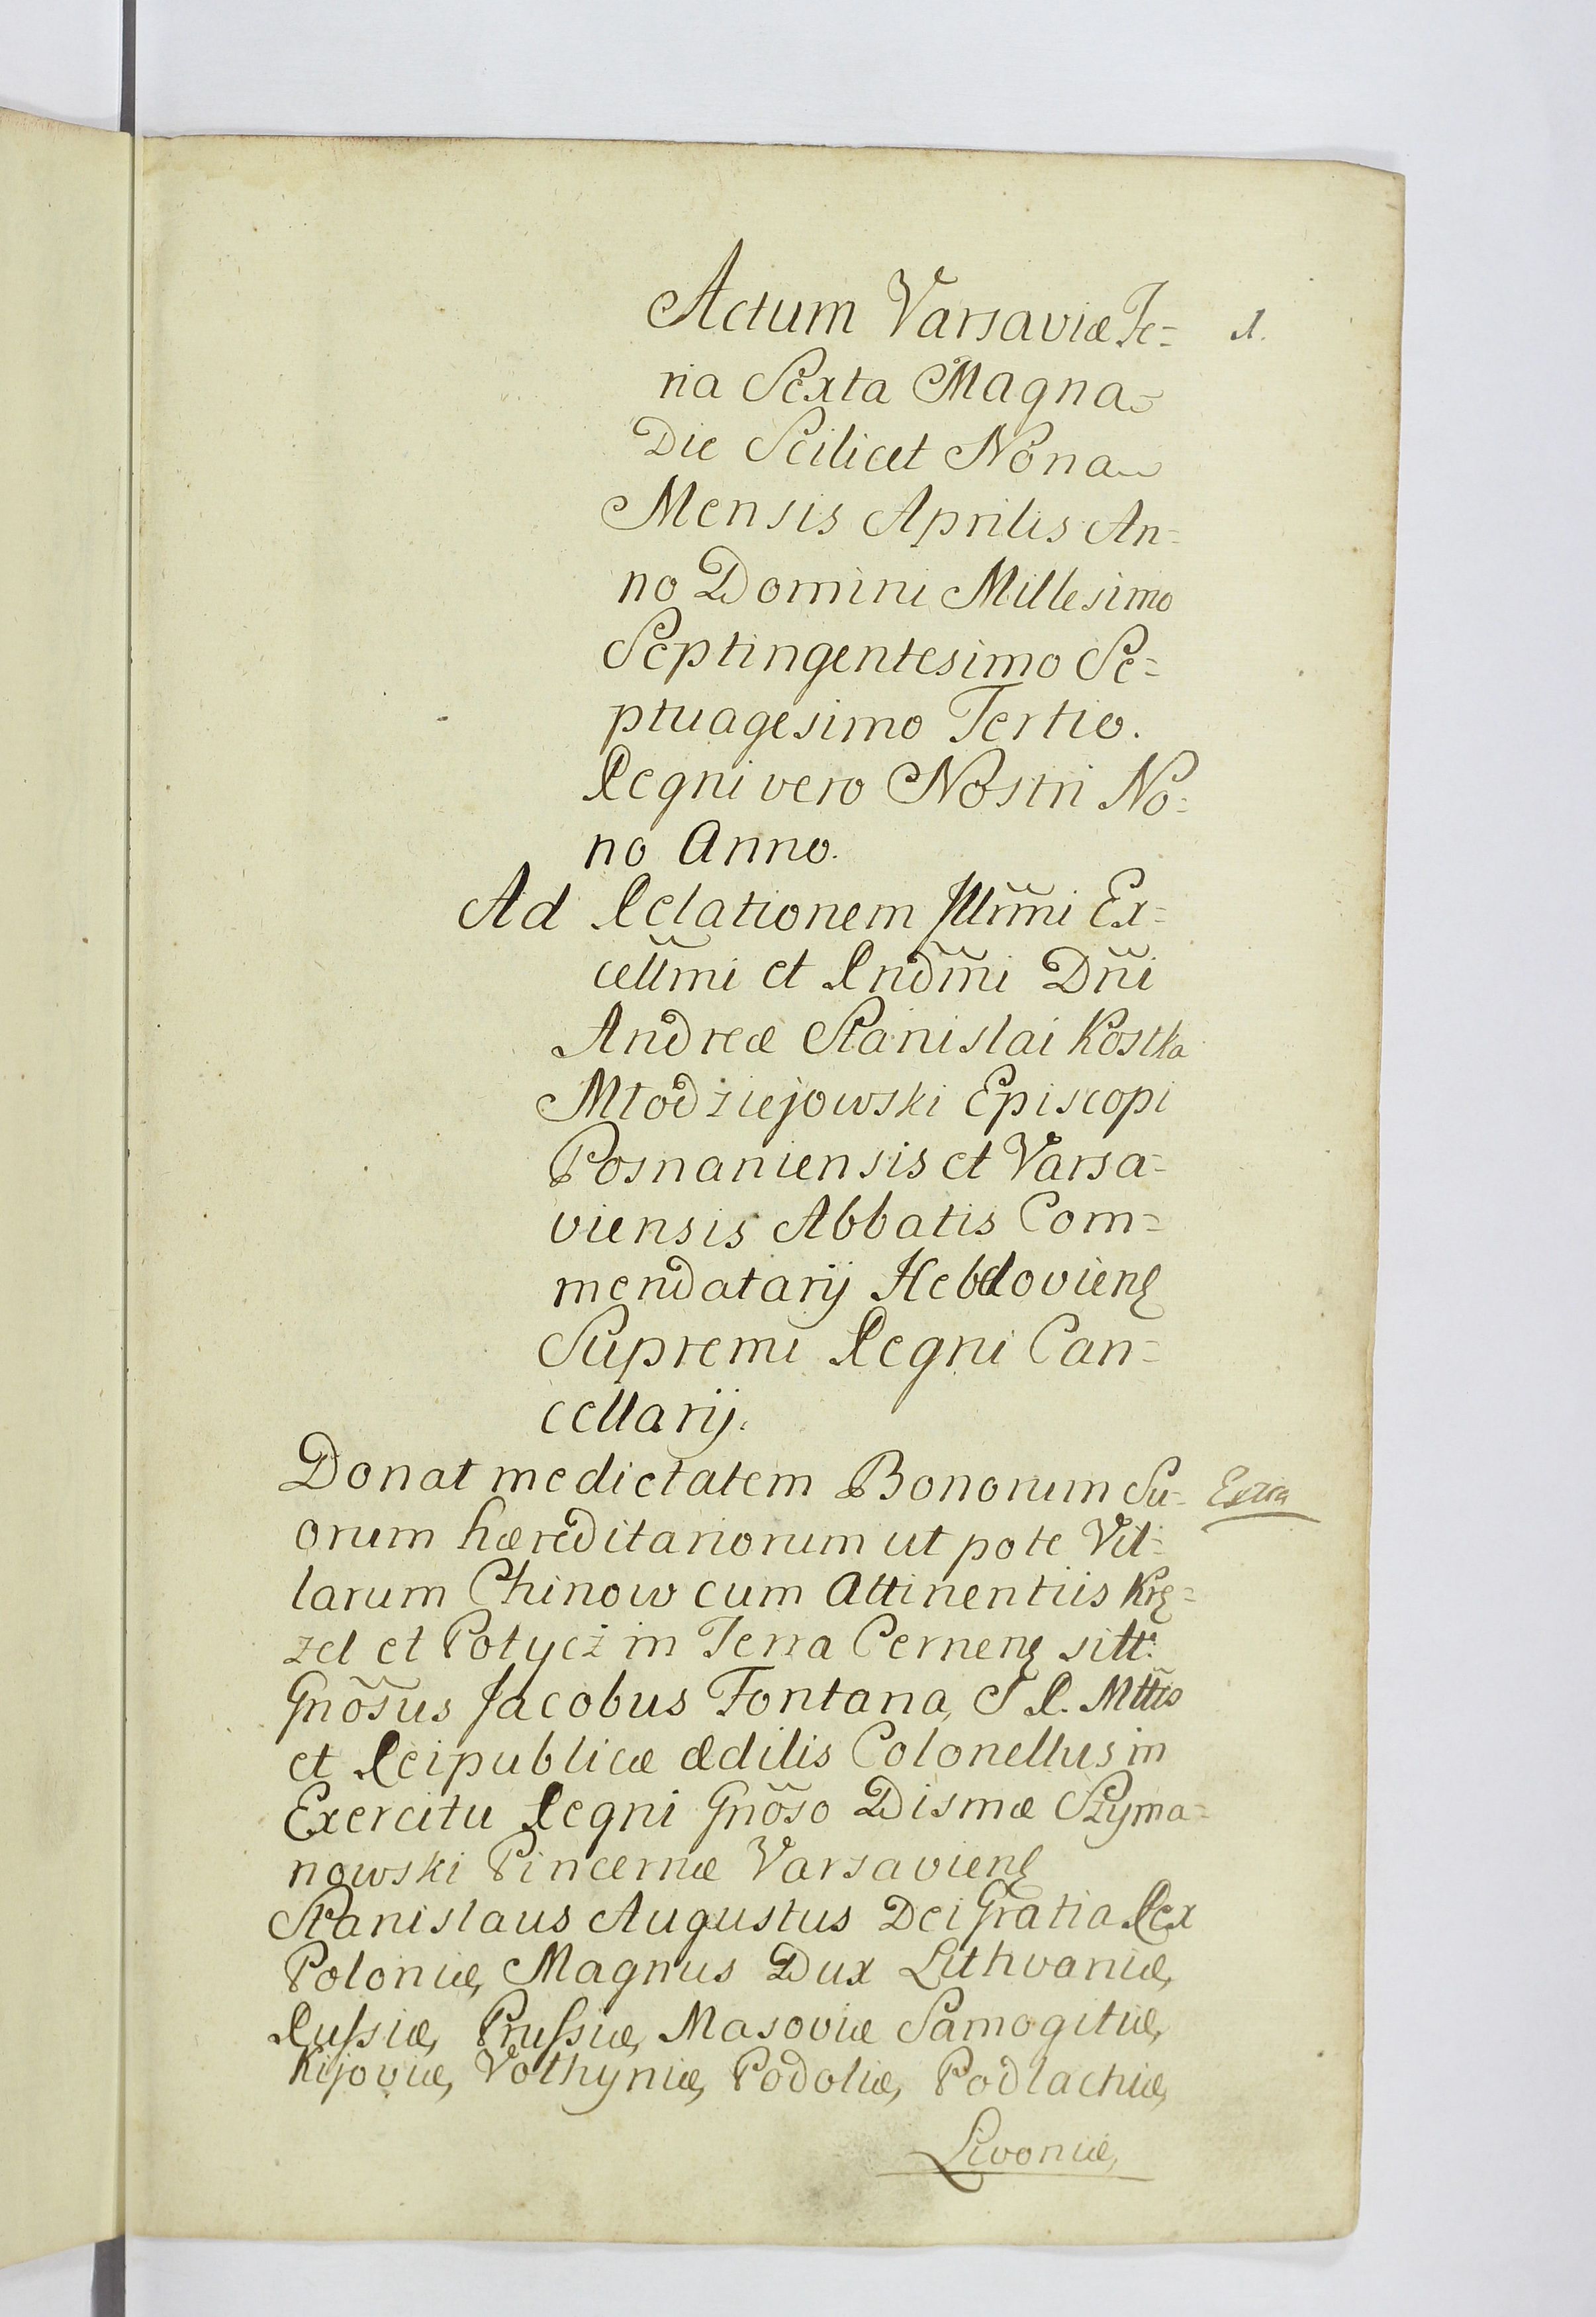 Actum Varsaviæ Fe= 1.
ria Sexta Magna
Die Scilicet Nona
Mensis Aprilis An=
no Domini Millesimo
Septingentesimo Se=
ptuagesimo Tertio.
Regni vero Nostri No=
no Anno.
Ad Relationem Illr̃mi Ex=
cellm̃i et Rnd̃mi Dñi
Andreæ Stanislai Kostka
Młodziejowski Episcopi
Posnaniensis et Varsa=
viensis Abbatis Com=
mendatarij Hebdovienꝭ
Supremi Regni Can=
cellarij.
Donat medietatem Bonorum Su= Extra
orum hæreditariorum ut pote Vil=
larum Chinow cum Attinentiis Krę=
zel et Potycż in Terra Cernenꝭ sitt:
Gnõsus Jacobus Fontana, S R. Mttis
et Reipublicæ ædilis Colonellus in
Exercitu Regni Gnõso Dismæ Szyma=
nowski Pincernæ Varsavienꝭ
Stanislaus Augustus Dei Gratia Rex
Poloniæ, Magnus Dux Lithvaniæ,
Ruſsiæ, Pruſsiæ, Masoviæ Samogitiæ,
Kijoviæ, Volhyniæ, Podoliæ, Podlachiæ,
Livoniæ,